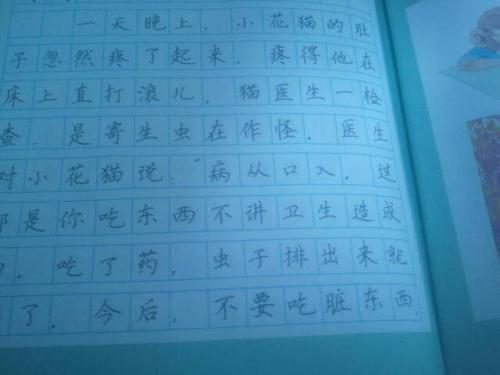 一天晚上，小花猫的肚
子忽然疼了起来．疼得他在
床上直打滚儿．猫医生一检
查．是寄生虫在作怪．医生
对小花猫说．“病从口入．这
都是你吃东西不讲卫生造成
的．吃了药，虫子排出来就
了．今后，不要吃脏东西．